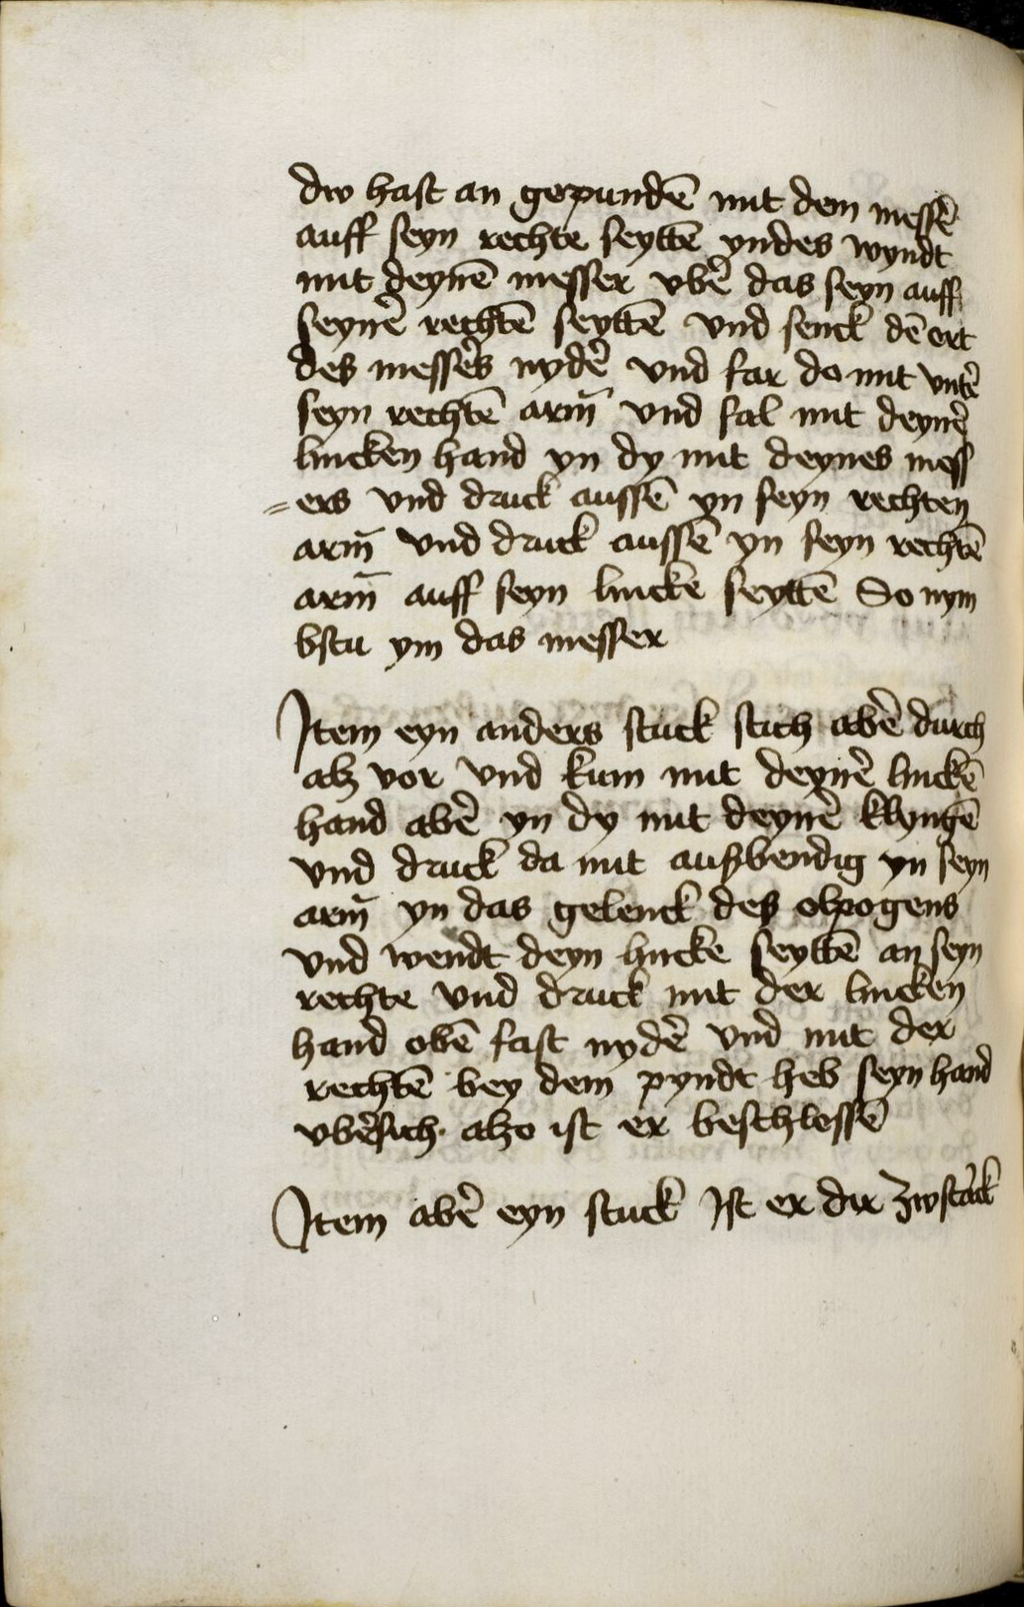 dw hast an gepundē mit dem messe᷑
auff seyn rechte seyttē yndes wyndt
mit deynē messer vbe᷑ das seyn auff
seyne᷑ rechtē seyttē vnd senck dē ort
des messe᷑s nyde᷑ vnd far do mit vnte᷑
seyn rechtē arm̄ vnd fal mit deyne᷑
lincken hand yn dy mit deynes mess
=ers vnd druck aussē yn seyn rechten
arm̄ vnd druck aussē yn seyn rechtē
arm̄ auff seyn lincke seyttē So nym
bstu ym das messer
Item eyn anders stuck stich abe᷑ durch
alz vor vnd kum mit deyne᷑ linckē
hand abe᷑ yn dy mit deyne᷑ klyngē
vnd druck da mit auszbendig yn seyn
arm̄ yn das gelenck des elpogens
vnd wendt deyn lincke seyttē an seyn
rechte vnd druck mit der lincken
hand obē fast nyde᷑ vnd mit der
rechtē bey dem pyndt heb seyn hand
vbe᷑sich· alzo ist er beschlessē
Item abe᷑ eyn stuck Ist er dir zw starck